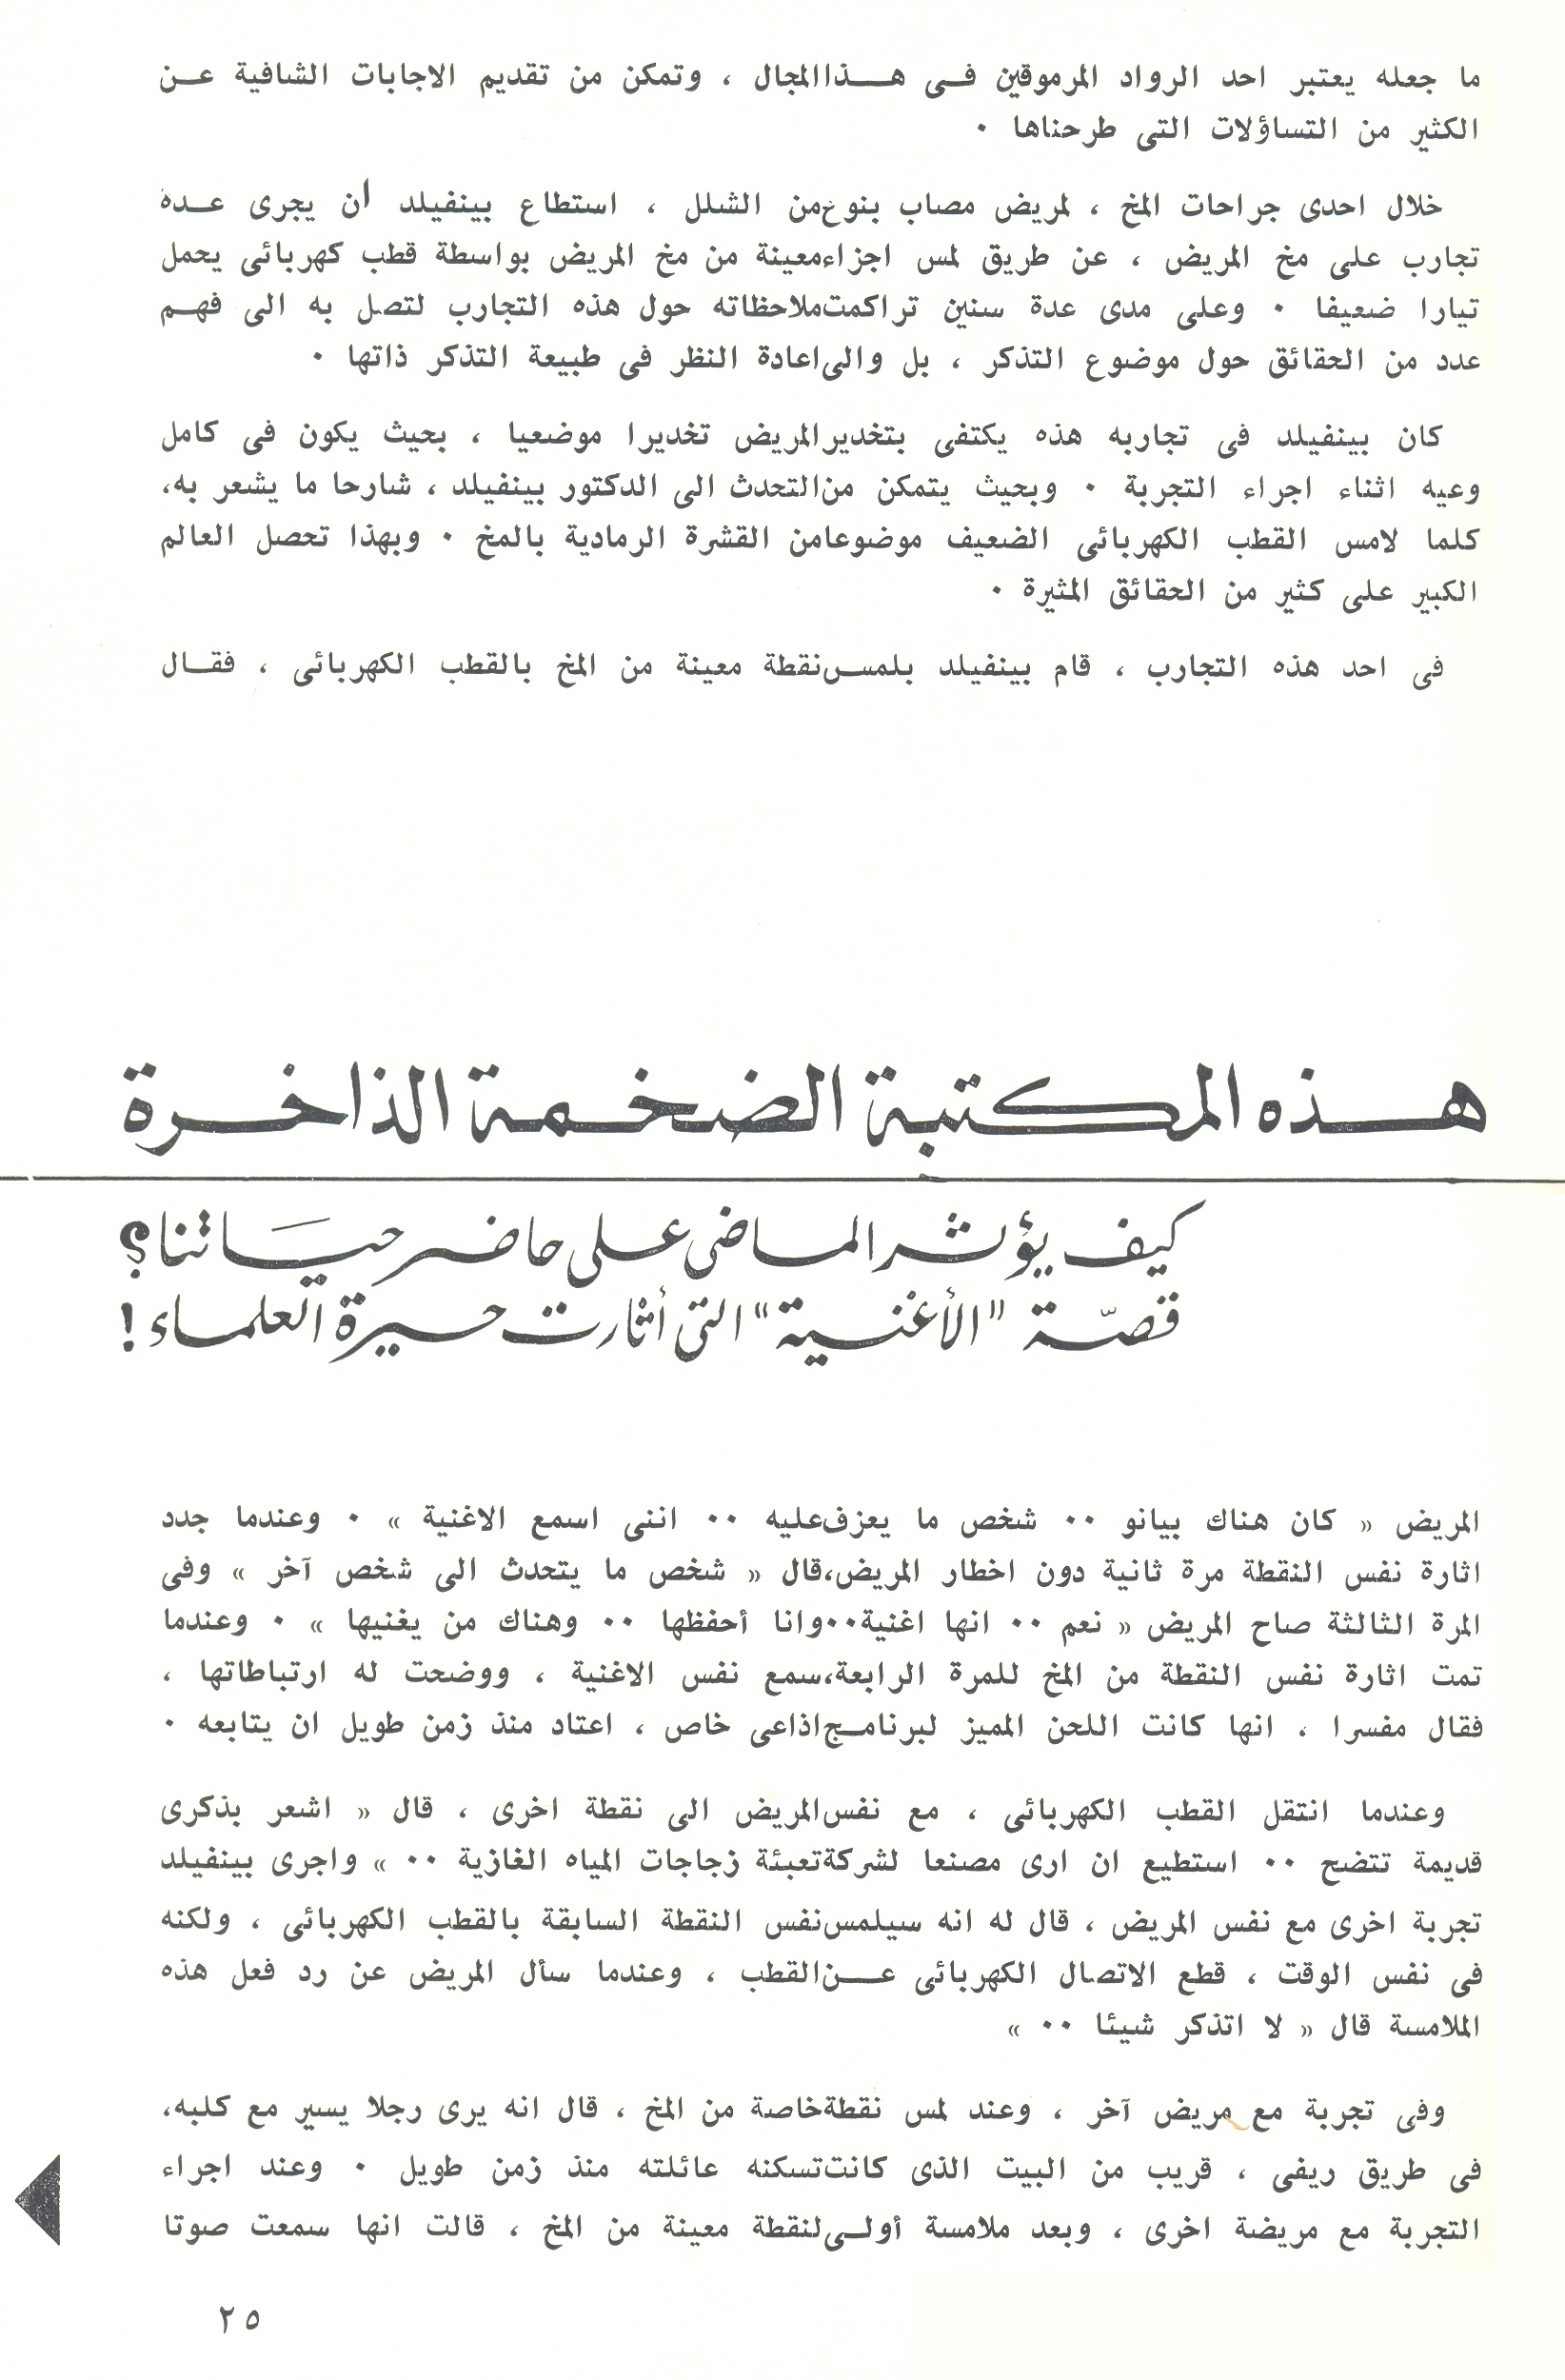 ما جعله يعتبر احد الرواد المرموقين فى هـذا المجال ، وتمكن من تقديم الاجابات الشافية عـن
الكثير من التساؤلات التى طرحناها ٠
خلال احدى جراحات المخ ، لمريض مصاب بنوع من الشلل ، استطاع بينفيلد أن يجرى عـدة
تجارب على مخ المريض ، عن طريق لمس اجزاء معينة من مخ المريض بواسطة قطب كهربائى يحمل
تيارا ضعيفا ٠ وعلى مدى عدة سنين تراكمت ملاحظاته حول هذه التجارب لتصل به الى فهـم
عدد من الحقائق حول موضوع التذكر ، بل والى اعادة النظر فى طبيعة التذكر ذاتها ٠
كان بينفيلد فى تجاربه هذه يكتفى بتخدير المريض تخديرا موضعيا ، بحيث يكون فى كامل
وعيه اثناء اجراء التجربة ٠ وبحيث يتمكن من التحدث الى الدكتور بينفيلد ، شارحا ما يشعر به،
كلما لامس القطب الكهربائى الضعيف موضوعا من القشرة الرمادية بالمخ ٠ وبهذا تحصل العالم
الكبير على كثير من الحقائق المثيرة ٠
فى احد هذه التجارب ، قام بينفيلد بلمس نقطة معينة من المخ بالقطب الكهربائى ، فقـال
هـذه المكتبة الضخمة الذاخرة
كيف يؤثر الماضى على حاضر حياتنا؟
قصّة "الأغنية" التى أثارت حيرة العلماء!
المريض « كان هناك بيانو ٠٠ شخص ما يعزف عليه ٠٠ اننى اسمع الاغنية » ٠ وعندما جدد
اثارة نفس النقطة مرة ثانية دون اخطار المريض، قال « شخص ما يتحدث الى شخص آخر » وفى
المرة الثالثة صاح المريض « نعم ٠٠ انها اغنية ٠٠ وانا أحفظها ٠٠ وهناك من يغنيها » ٠ وعندما
تمت اثارة نفس النقطة من المخ للمرة الرابعة، سمع نفس الاغنية ، ووضحت له ارتباطاتها ،
فقال مفسرا ، انها كانت اللحن المميز لبرنامج اذاعى خاص ، اعتاد منذ زمن طويل ان يتابعه ٠
وعندما انتقل القطب الكهربائى ، مع نفس المريض الى نقطة اخرى ، قال « اشعر بذكرى
قديمة تتضح ٠٠ استطيع ان ارى مصنعا لشركة تعبئة زجاجات المياه الغازية ٠٠ » واجرى بينفيلد
تجربة اخرى مع نفس المريض ، قال له انه سيلمس نفس النقطة السابقة بالقطب الكهربائى ، ولكنه
فى نفس الوقت ، قطع الاتصال الكهربائى عـن القطب ، وعندما سأل المريض عن رد فعل هذه
الملامسة قال « لا اتذكر شيئا ٠٠ »
وفى تجربة مع مريض آخر ، وعند لمس نقطة خاصة من المخ ، قال انه يرى رجلا يسير مع كلبه،
فى طريق ريفى ، قريب من البيت الذى كانت تسكنه عائلته منذ زمن طويل ٠ وعند اجراء
التجربة مع مريضة اخرى ، وبعد ملامسة أولـى لنقطة معينة من المخ ، قالت انها سمعت صوتا
٢٥